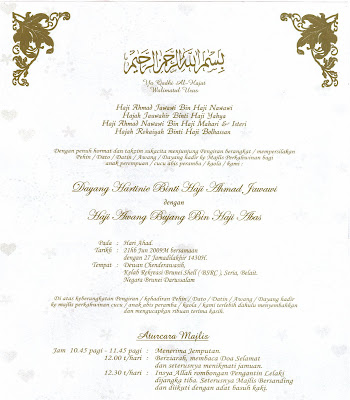 بسم الله الرحمن الرحيم
Ya Qadla Al-Hajat
Walimatul Urus
Haji Ahmad Jawawi Bin Haji Nawawi
Hajah Jauwahir Binti Haji Yahya
Haji Ahmad Nawawi Bin Haji Mahari & Isteri
Hajah Rokaiyah Binti Haji Bolhassan
Dengan penuh hormat dan takzim sukacita menjunjung Pengiran berangkat / mempersilakan
Pehin / Dato / Datin / Awang / Dayang hadir ke Majlis Perkahwinan bagi
anak perempuan / cucu abis peramba / kaola / kami :
Dayang Hartinie Binti Haji Ahmad Jawawi
dengan
Haji Awang Bujang Bin Haji Abas
Pada : Hari Ahad
Tarikh : 21hb Jun 2009M bersamaan
dengan 27 Jamadilakhir 1430H.
Tempat : Dewan Chenderawasih,
Kelab Rekreasi Brunei Shell ( BSRC ), Seria, Belait.
Negara Brunei Darussalam
Di atas keberangkatan Pengiran / kehadiran Pehin / Dato / Datin / Awang / Dayang hadir
ke majlis perkahwinan cucu / anak abis peramba / kaola / kami terlebih dahulu menyembahkan
dan mengucapkan ribuan terima kasih.
Aturcara Majlis
Jam 10.45 pagi - 11.45 pagi : Menerima Jemputan.
12.00 t/hari : Berziarah, membaca Doa Selamat
dan seterusnya menikmati jamuan.
12.30 t/hari : Insya Allah rombongan Pengantin Lelaki
dijangka tiba. Seterusnya Majlis Bersanding
dan diikuti dengan adat basuh kaki.